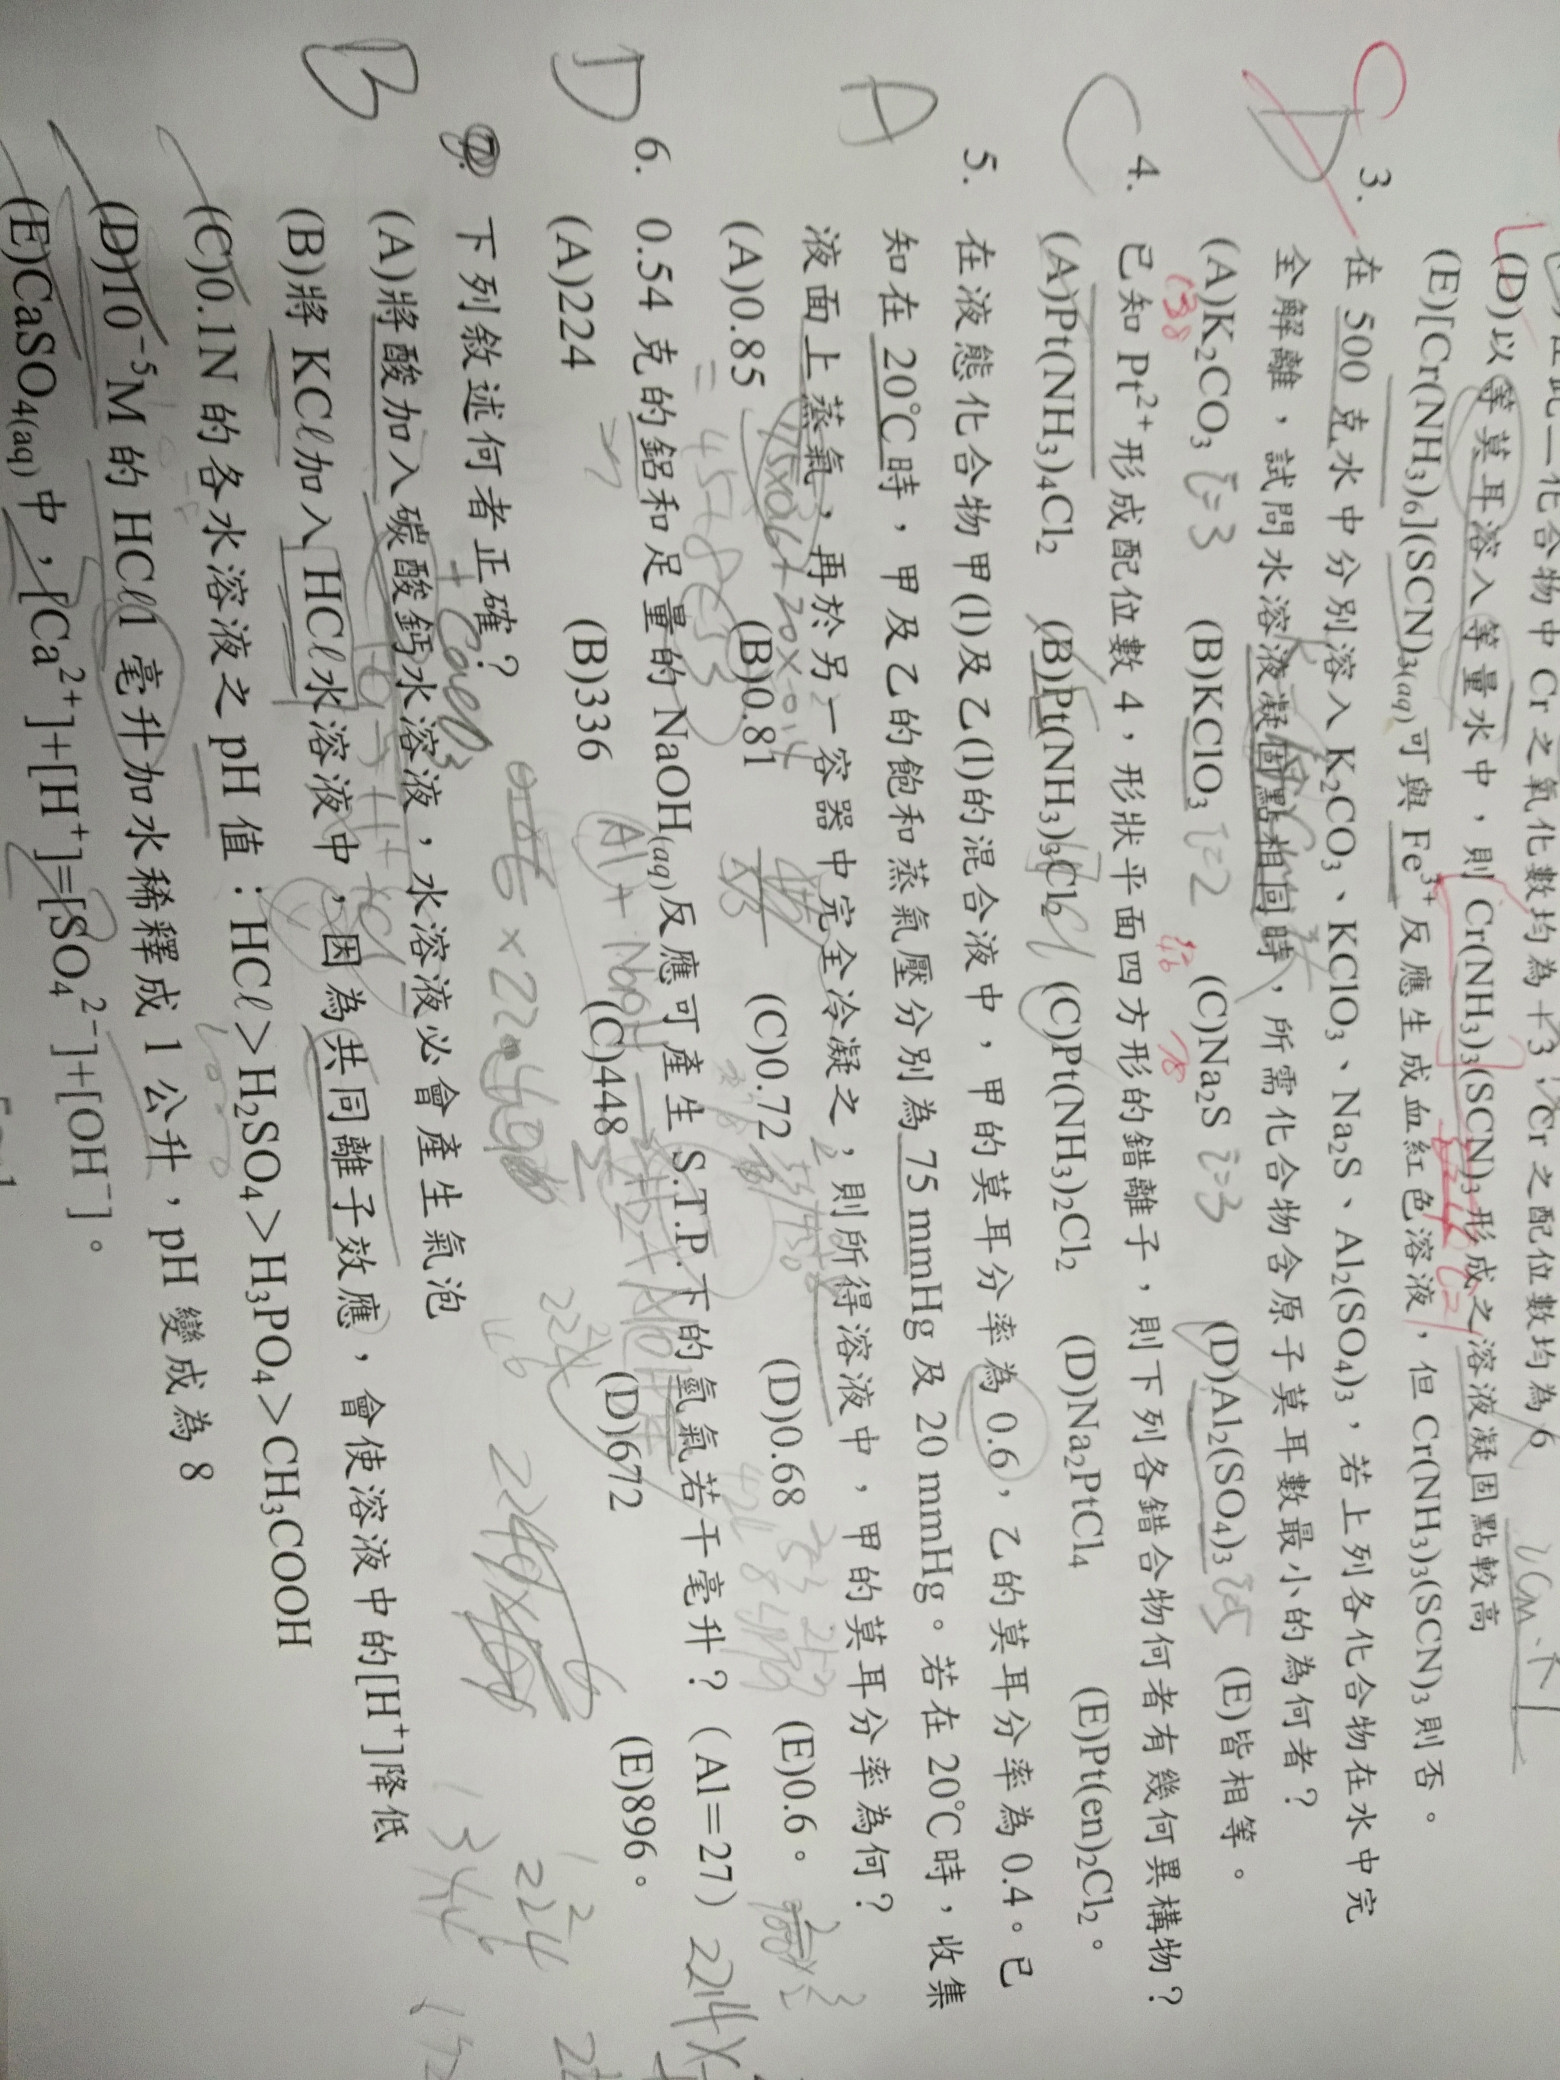 在此二化合物中 Cr 之氧化數均為+3,Cr 之配位數均為 6
(D)以等莫耳溶入等量水中,則 Cr(NH₃)₃(SCN)₃形成之溶液凝固點較高
(E)[Cr(NH₃)₆](SCN)₃(aq)可與 Fe³⁺反應生成血紅色溶液,但 Cr(NH₃)₃(SCN)₃則否。
C
D
3. 在 500 克水中分別溶入 K₂CO₃、KClO₃、Na₂S、Al₂(SO₄)₃,若上列各化合物在水中完
全解離,試問水溶液凝固點相同時,所需化合物含原子莫耳數最小的為何者?
(A)K₂CO₃ i=3 (B)KClO₃ i=2 (C)Na₂S i=3 (D)Al₂(SO₄)₃ i=5 (E)皆相等。
138
C
4. 已知 Pt²⁺形成配位數 4,形狀平面四方形的錯離子,則下列各錯合物何者有幾何異構物?
(A)Pt(NH₃)₄Cl₂ (B)Pt(NH₃)₃Cl₂ (C)Pt(NH₃)₂Cl₂ (D)Na₂PtCl₄ (E)Pt(en)₂Cl₂。
A
5. 在液態化合物甲(l)及乙(l)的混合液中,甲的莫耳分率為 0.6,乙的莫耳分率為 0.4。已
知在 20℃時,甲及乙的飽和蒸氣壓分別為 75 mmHg 及 20 mmHg。若在 20℃時,收集
液面上蒸氣,再於另一容器中完全冷凝之,則所得溶液中,甲的莫耳分率為何?
(A)0.85 (B)0.81 (C)0.72 (D)0.68 (E)0.6。
75×0.6+20×0.4
=45+8=53
D
6. 0.54 克的鋁和足量的 NaOH(aq)反應可產生 S.T.P.下的氫氣若干毫升?(Al=27)
(A)224 (B)336 (C)448 (D)672 (E)896。
B
7. 下列敘述何者正確?
(A)將酸加入碳酸鈣水溶液,水溶液必會產生氣泡
(B)將 KCl加入 HCl水溶液中,因為共同離子效應,會使溶液中的[H⁺]降低
(C)0.1N 的各水溶液之 pH 值:HCl>H₂SO₄>H₃PO₄>CH₃COOH
(D)10⁻⁵M 的 HCl1 毫升加水稀釋成 1 公升,pH 變成為 8
(E)CaSO₄(aq)中,[Ca²⁺]+[H⁺]=[SO₄²⁻]+[OH⁻]。